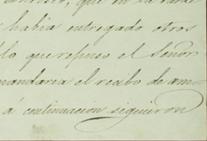 que en la
habia entregado otros
lo que repuso el Señor
mandaria el recibo de am
á continuacion siguieron